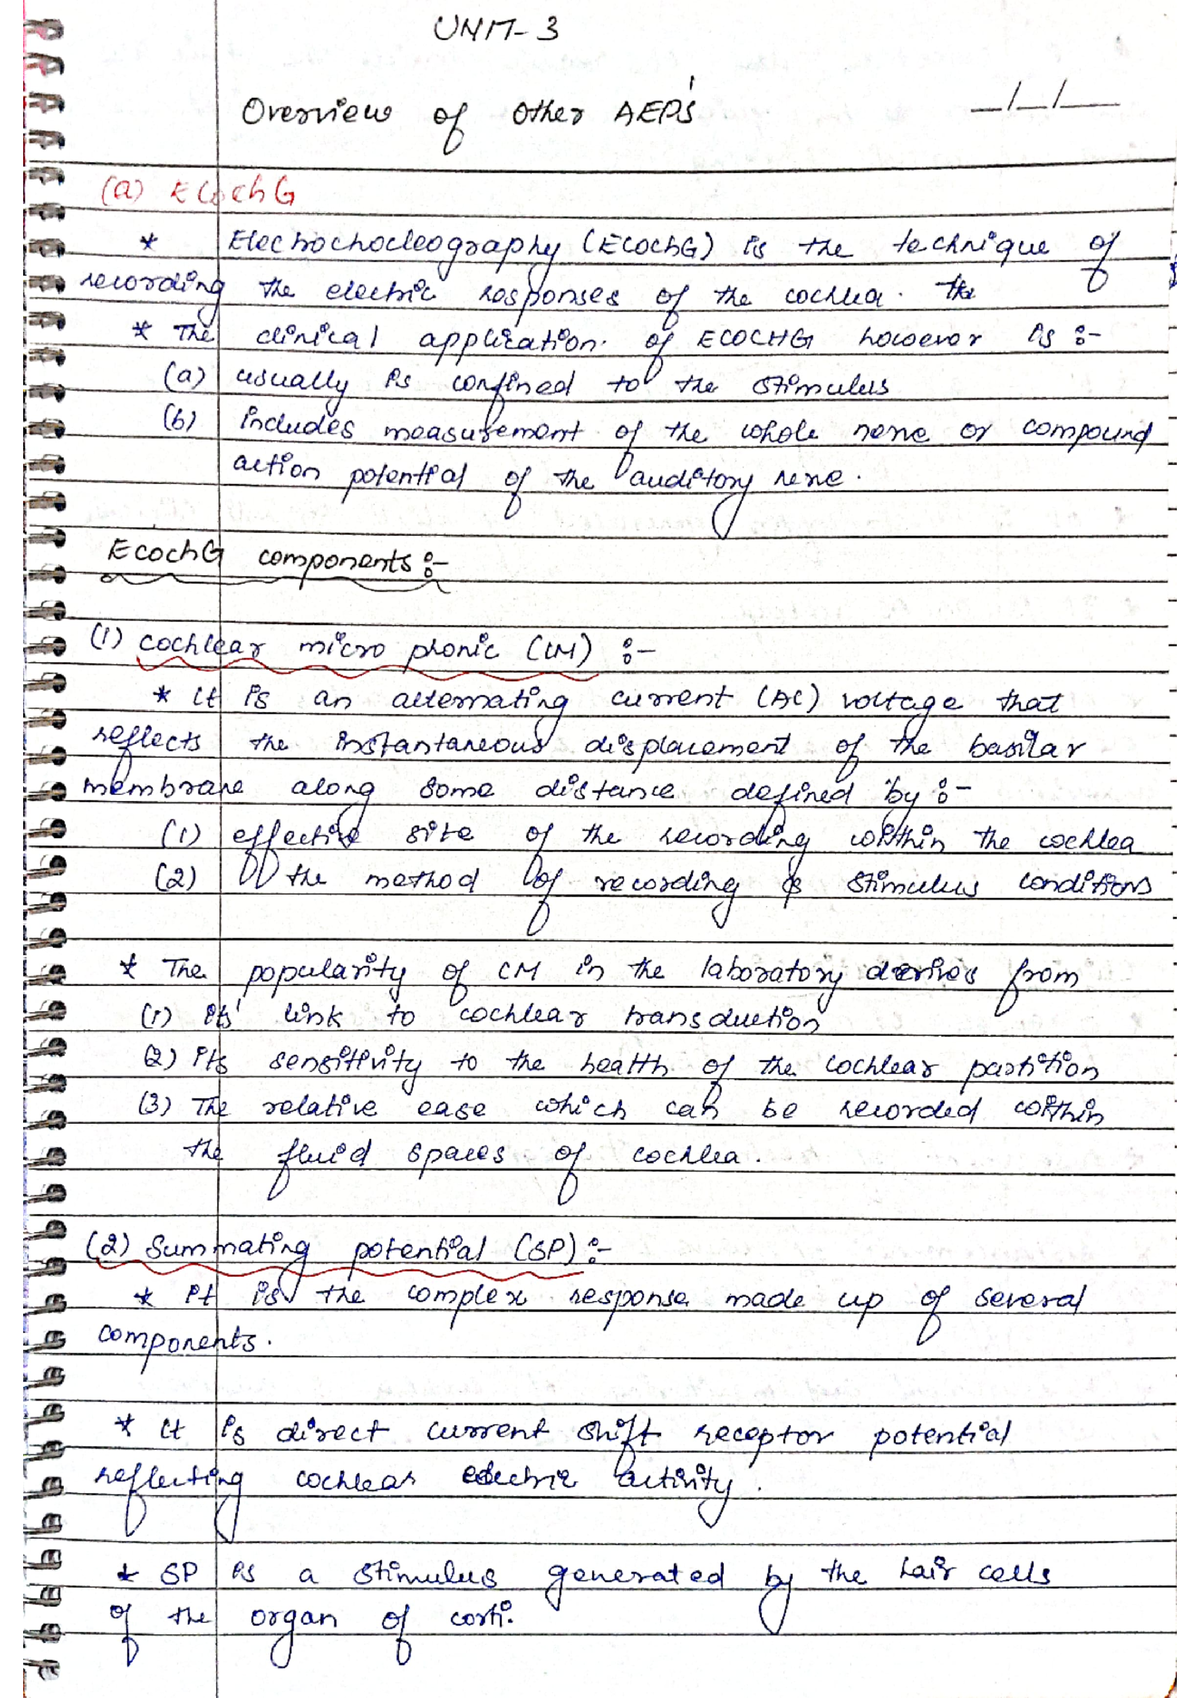 UNIT-3
Overview of other AEP's
_/_/_
(a) ECochG
* Electrochocleography (ECochG) is the technique of
recording the electric responses of the cochlea. The
* The clinical application of ECOCHG however is :-
(a) usually is confined to the stimulus
(b) includes measurement of the whole nerve or compound
action potential of the auditory nerve.
ECochG components :-
(1) cochlear micro phonic (CM) :-
* It is an alternating current (AC) voltage that
reflects the instantaneous displacement of the basilar
membrane along some distance defined by :-
(1) effective site of the recording within the cochlea
(2) the method of recording & stimulus conditions
* The popularity of CM in the laboratory derives from
(1) its' link to cochlear transduction
(2) its sensitivity to the health of the cochlear partition
(3) The relative ease which can be recorded within
the fluid spaces of cochlea.
(2) Summating potential (SP) :-
* It is the complex response made up of several
components.
* It is direct current shift receptor potential
reflecting cochlear electric activity.
* SP is a stimulus generated by the hair cells
of the organ of corti.